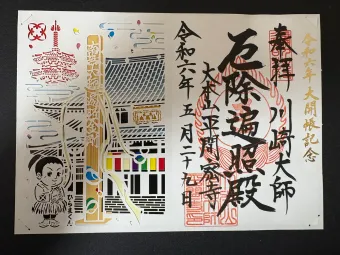 令和六年 大開帳記念
奉拝 川崎大師
厄除遍照殿
大本山平間寺
令和六年 五月二十九日